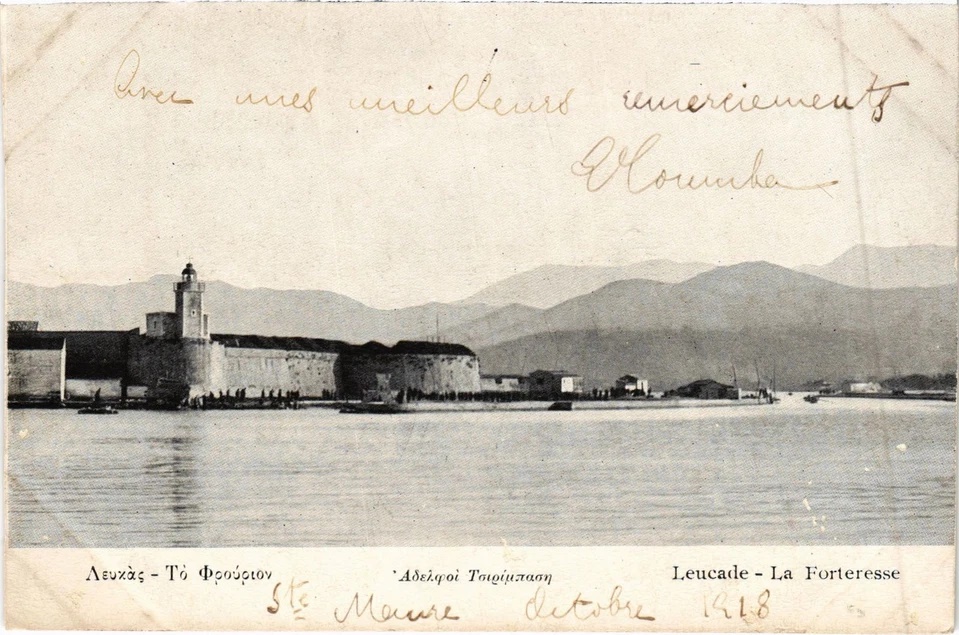 Avec mes meilleurs remerciements
Λευκὰς - Τὸ Φρούριον
Ἀδελφοὶ Τσιρίμπαση
Leucade - La Forteresse
Ste Maure Octobre 1918